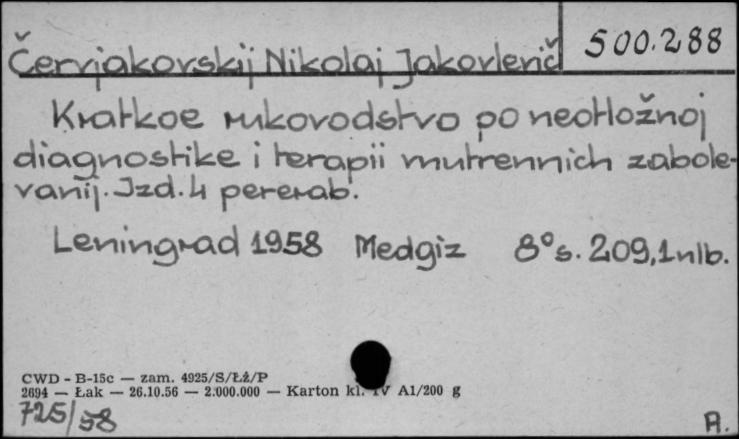 Červjakovskij Nikolaj Jakovlevič 500.288
Kratkoe rukovodstvo po neotložnoj
diagnostike i terapii vnutrennich zabole-
vanij. Izd. 4 pererab.
Leningrad 1958 Medgiz 8° s. 209, 1 nlb.
CWD - B-15c — zam. 4925/S/Łż/P
2694 — Łak — 26.10.56 — 2.000.000 — Karton kl. IV A1/200 g
725/58
A.